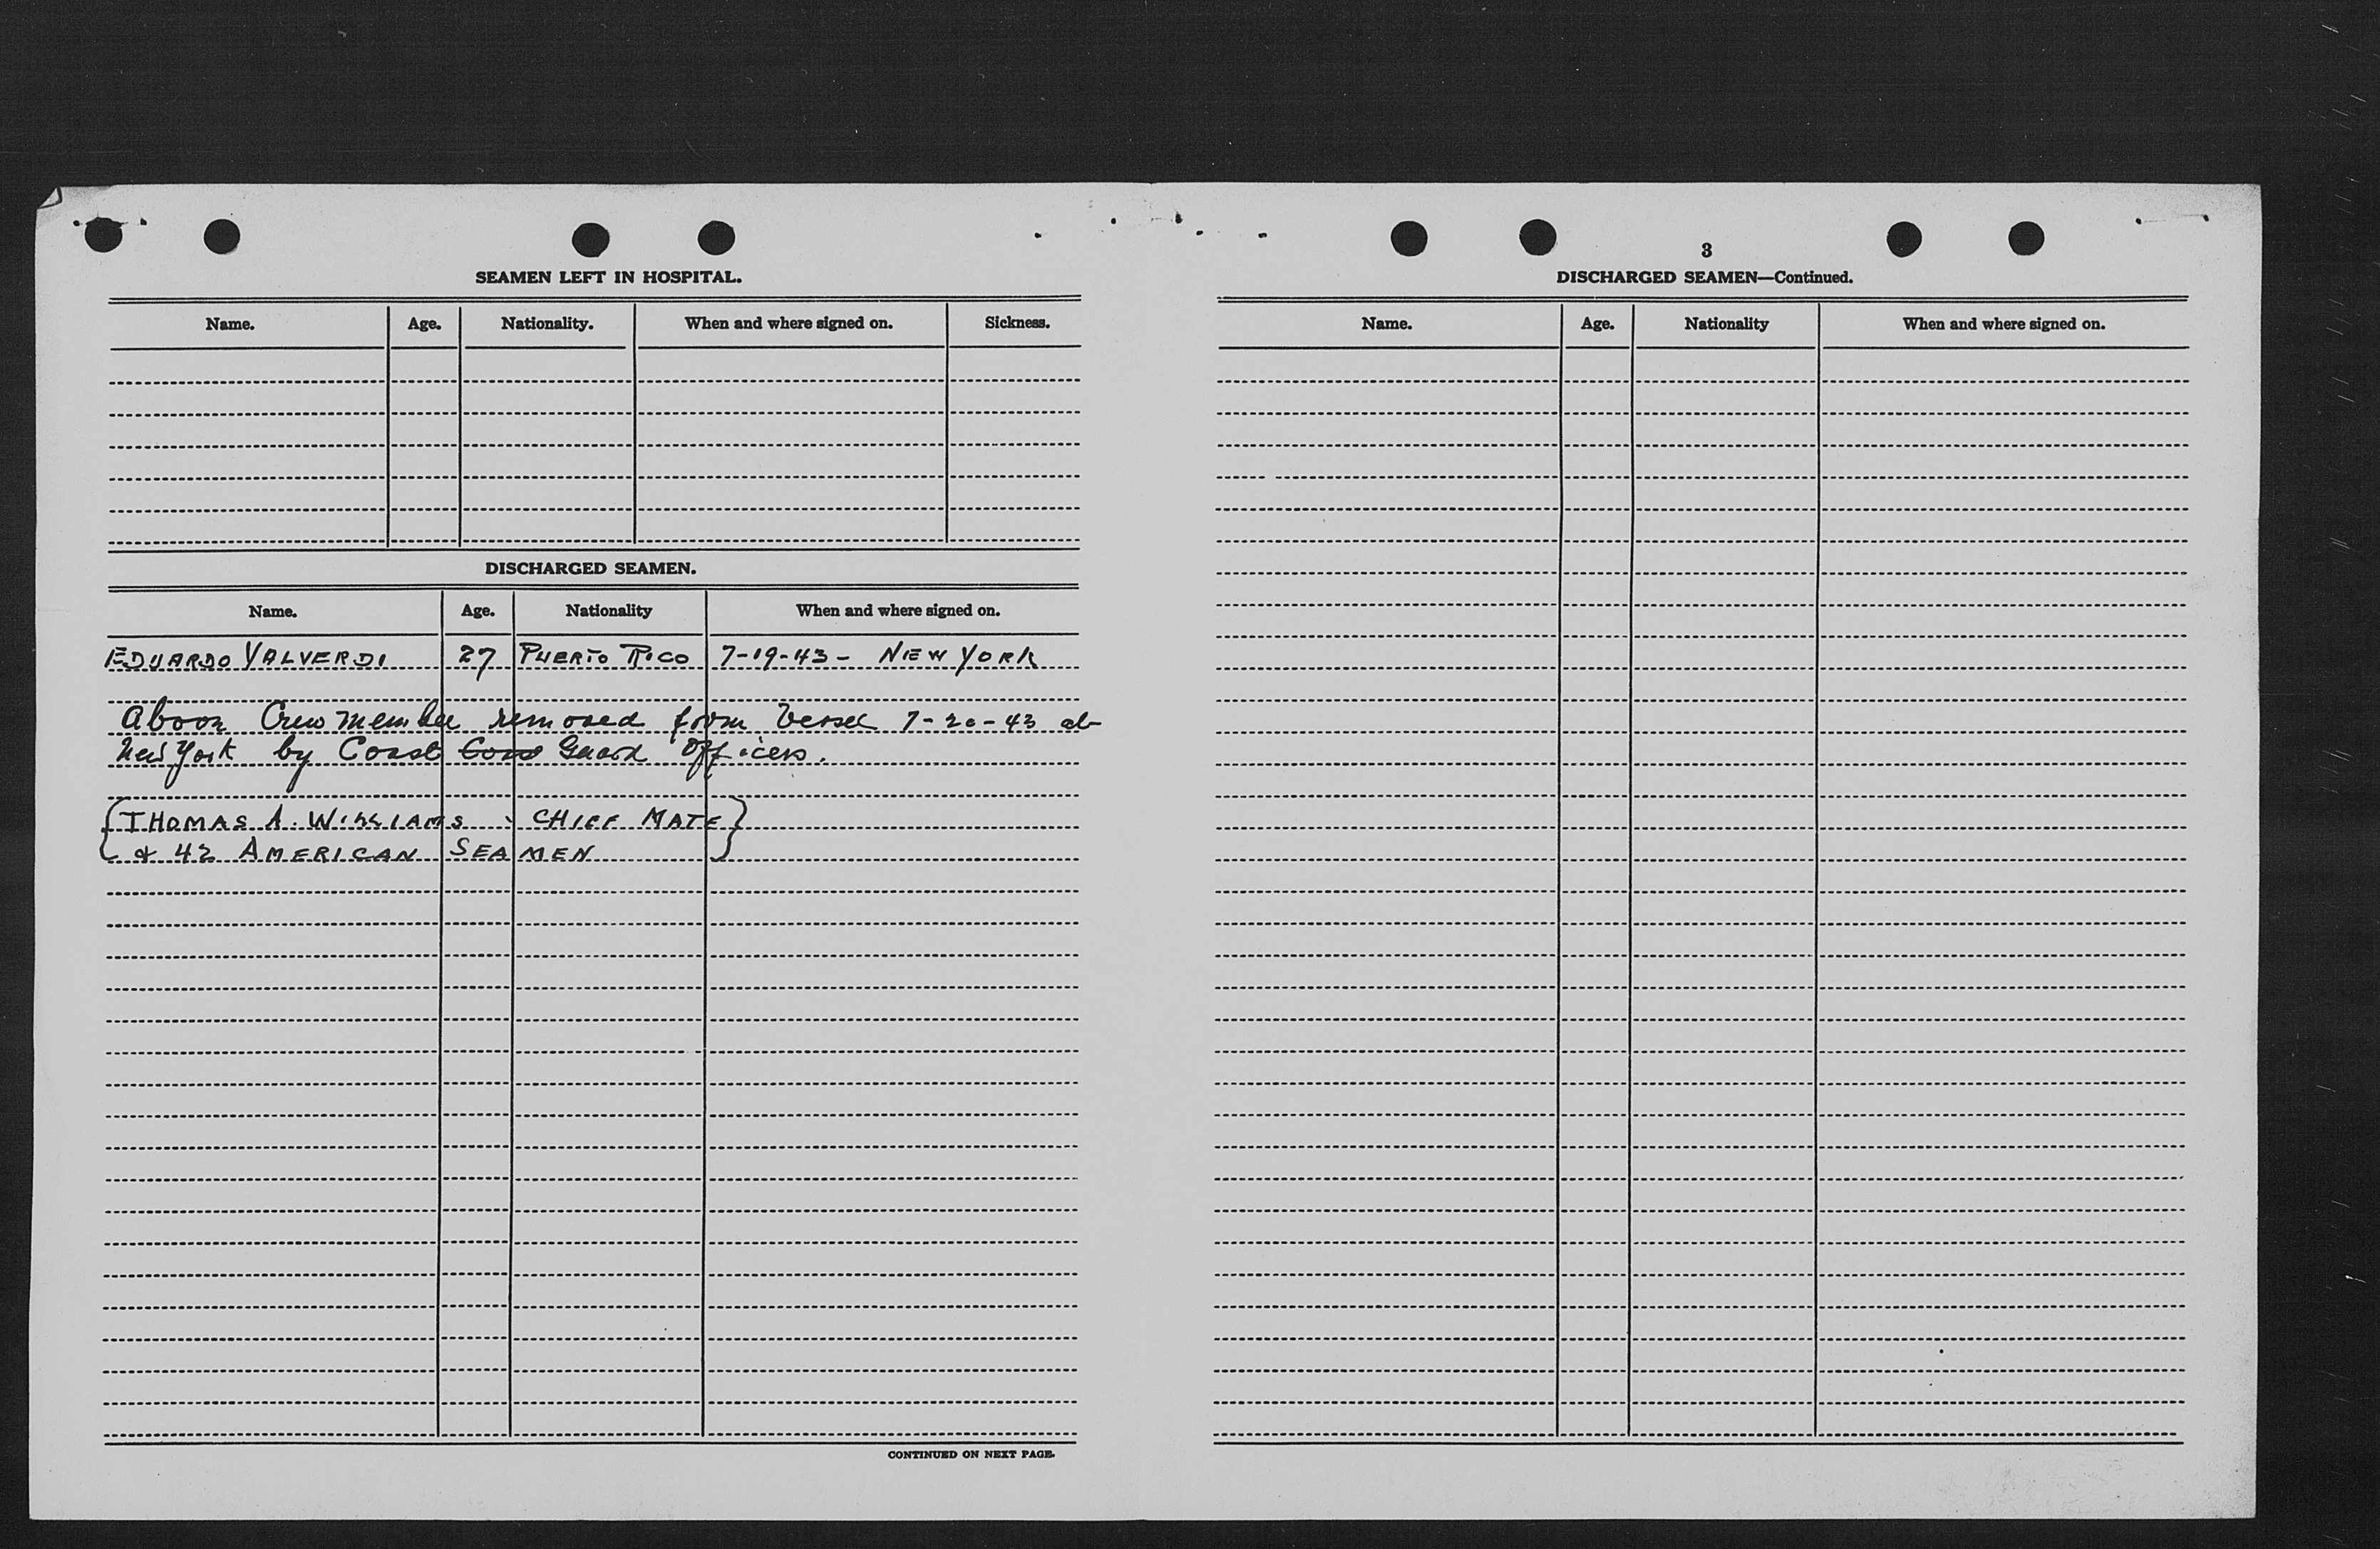 SEAMEN LEFT IN HOSPITAL.
Name. Age. Nationality. When and where signed on. Sickness.
DISCHARGED SEAMEN.
Name. Age. Nationality When and where signed on.
EDUARDO VALVERDI 27 PUERTO RICO 7-19-43 - NEW YORK
Above Crew member removed from Vessel 7-20-43 at
New York by Coast Guard Officers.
THOMAS A. WILLIAMS - CHIEF MATE
& 42 AMERICAN SEAMEN
CONTINUED ON NEXT PAGE.
3
DISCHARGED SEAMEN—Continued.
Name. Age. Nationality When and where signed on.